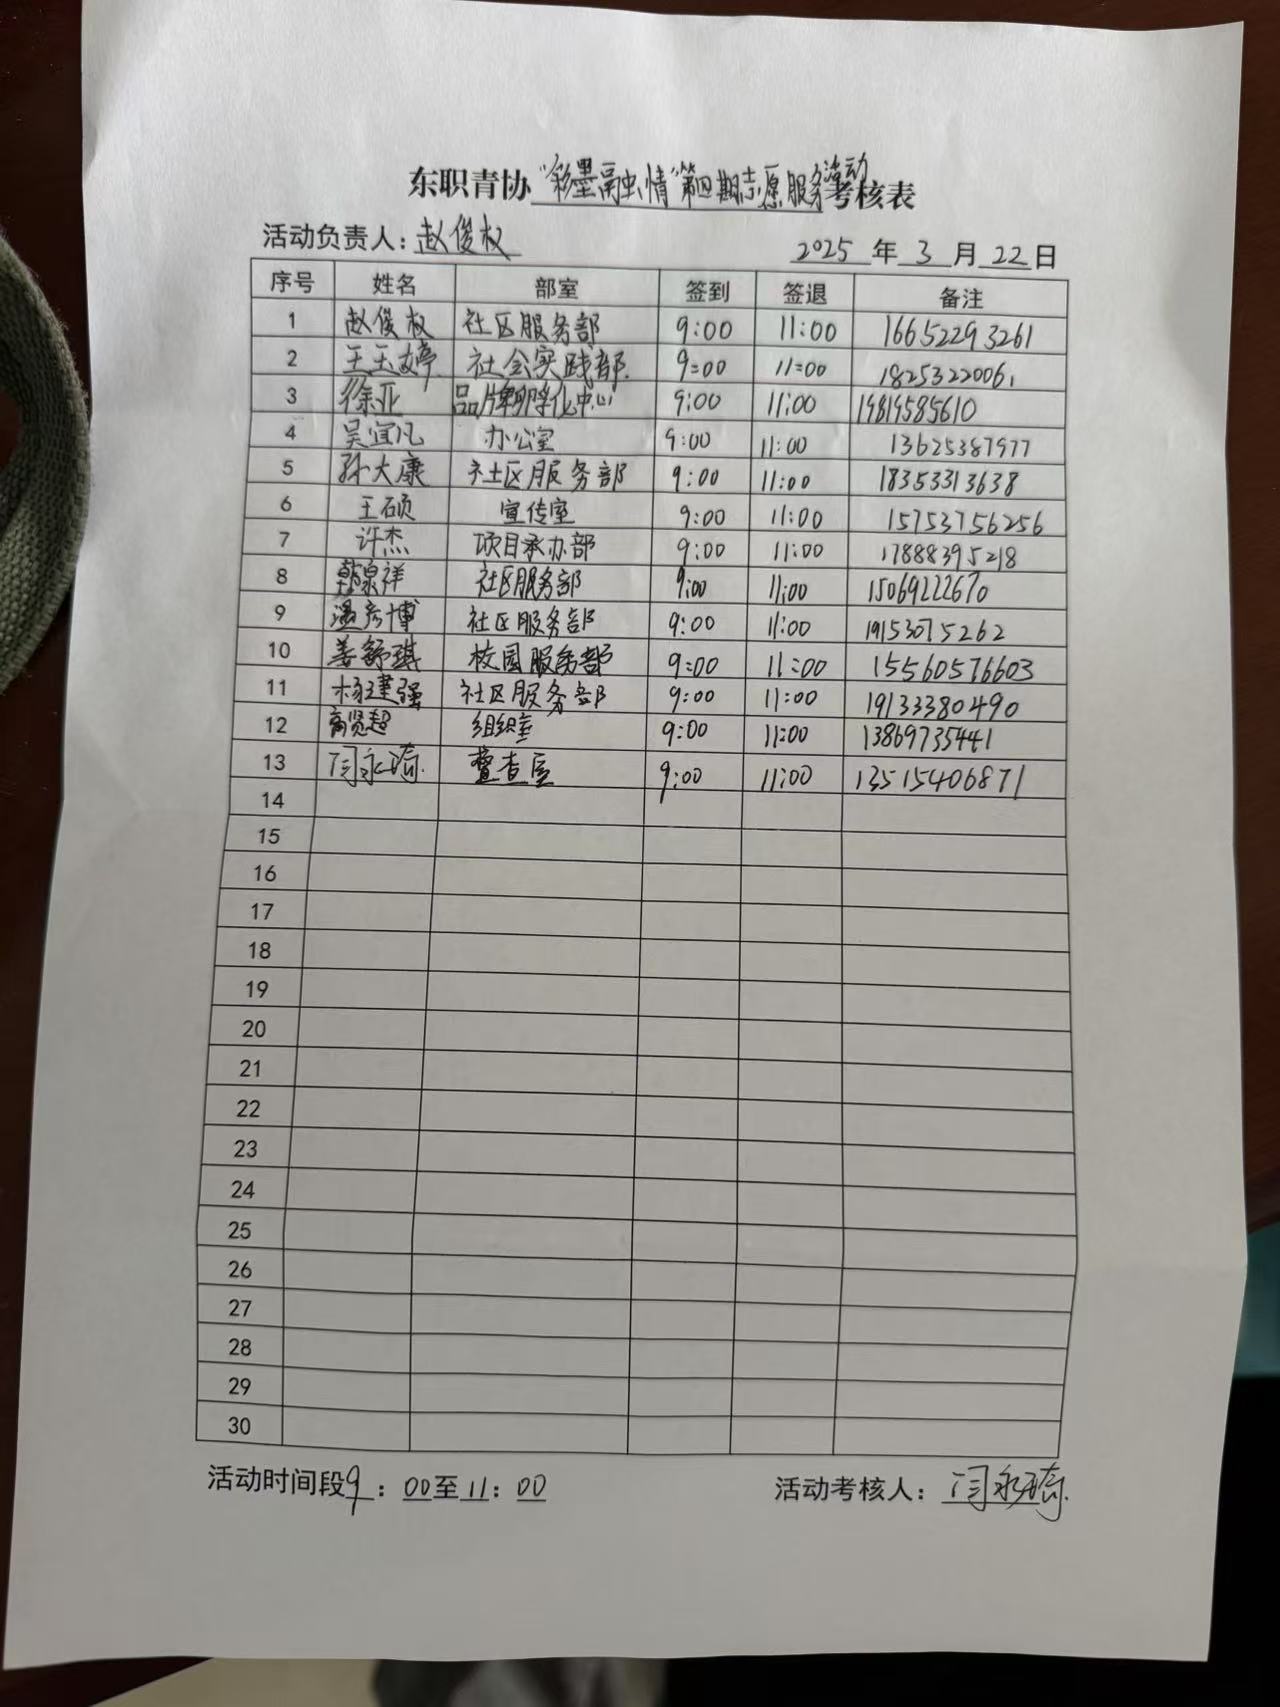 东职青协“彩墨融情”第四期志愿服务活动考核表
活动负责人：赵俊权 2025年3月22日
序号 姓名 部室 签到 签退 备注
1 赵俊权 社区服务部 9:00 11:00 16652293261
2 王玉婷 社会实践部 9:00 11:00 18253220061
3 徐亚 品牌孵化中心 9:00 11:00 19819585610
4 吴宜凡 办公室 9:00 11:00 13625387977
5 孙大康 社区服务部 9:00 11:00 18353313638
6 王硕 宣传室 9:00 11:00 15753756256
7 许杰 项目承办部 9:00 11:00 17888395218
8 韩泉祥 社区服务部 9:00 11:00 15069222670
9 温彦博 社区服务部 9:00 11:00 19153075262
10 姜舒琪 校园服务部 9:00 11:00 15560576603
11 杨建强 社区服务部 9:00 11:00 19133380490
12 高贤超 组织室 9:00 11:00 13869735441
13 闫永琦 查室 9:00 11:00 13515406871
14
15
16
17
18
19
20
21
22
23
24
25
26
27
28
29
30
活动时间段9：00至11：00 活动考核人：闫永琦